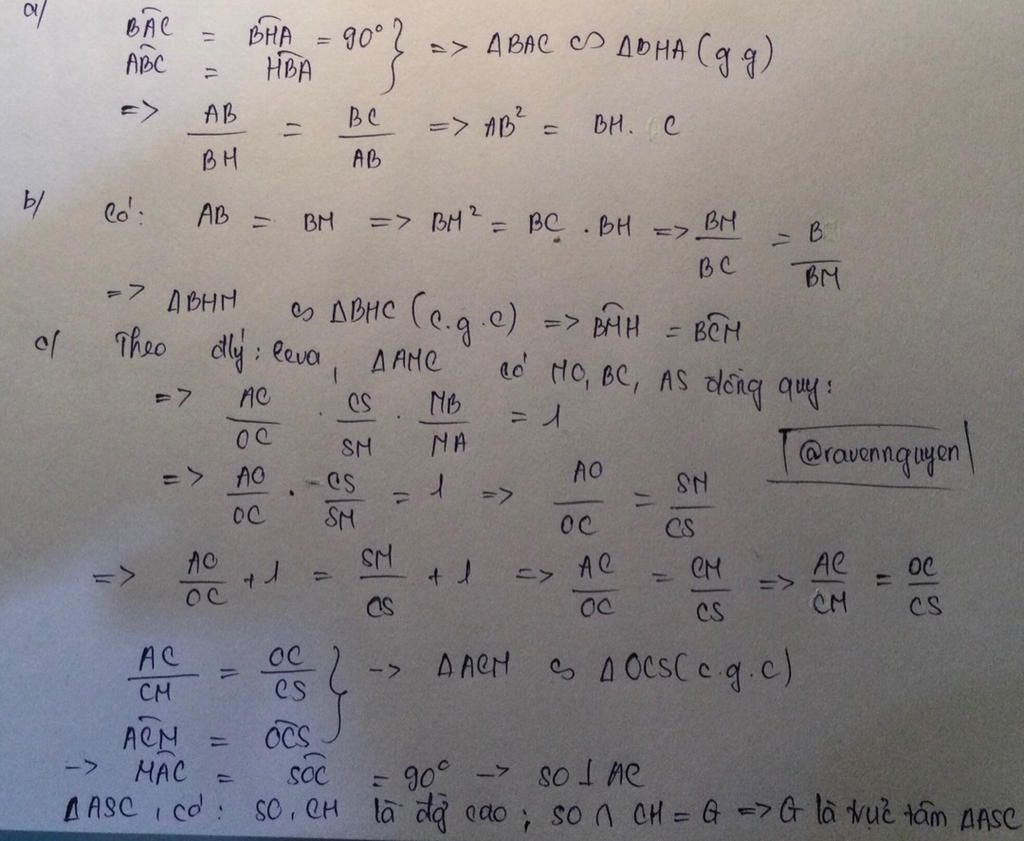 a/
BAC = BHA = 90° } => ΔBAC ∽ ΔBHA (g g)
ABC = HBA
=> AB/BH = BC/AB => AB² = BH. C
b/ Có: AB = BM => BM² = BC . BH => BM/BC = B/BM
=> ΔBHM ∽ ΔBHC (c.g.c) => BMH = BCM
c/ Theo đlý: Ceva, ΔAMC có MO, BC, AS đồng quy:
=> AC/OC . CS/SM . MB/MA = 1
=> AO/OC . CS/SM = 1 => AO/OC = SM/CS
@ravennguyen
=> AC/OC + 1 = SM/CS + 1 => AC/OC = CM/CS => AC/CM = OC/CS
AC/CM = OC/CS } -> ΔACM ∽ ΔOCS (c.g.c)
ACM = OCS
-> MAC = SOC = 90° -> SO ⊥ AC
ΔASC, có: SO, CH là đg cao; SO ∩ CH = G => G là trực tâm ΔASC